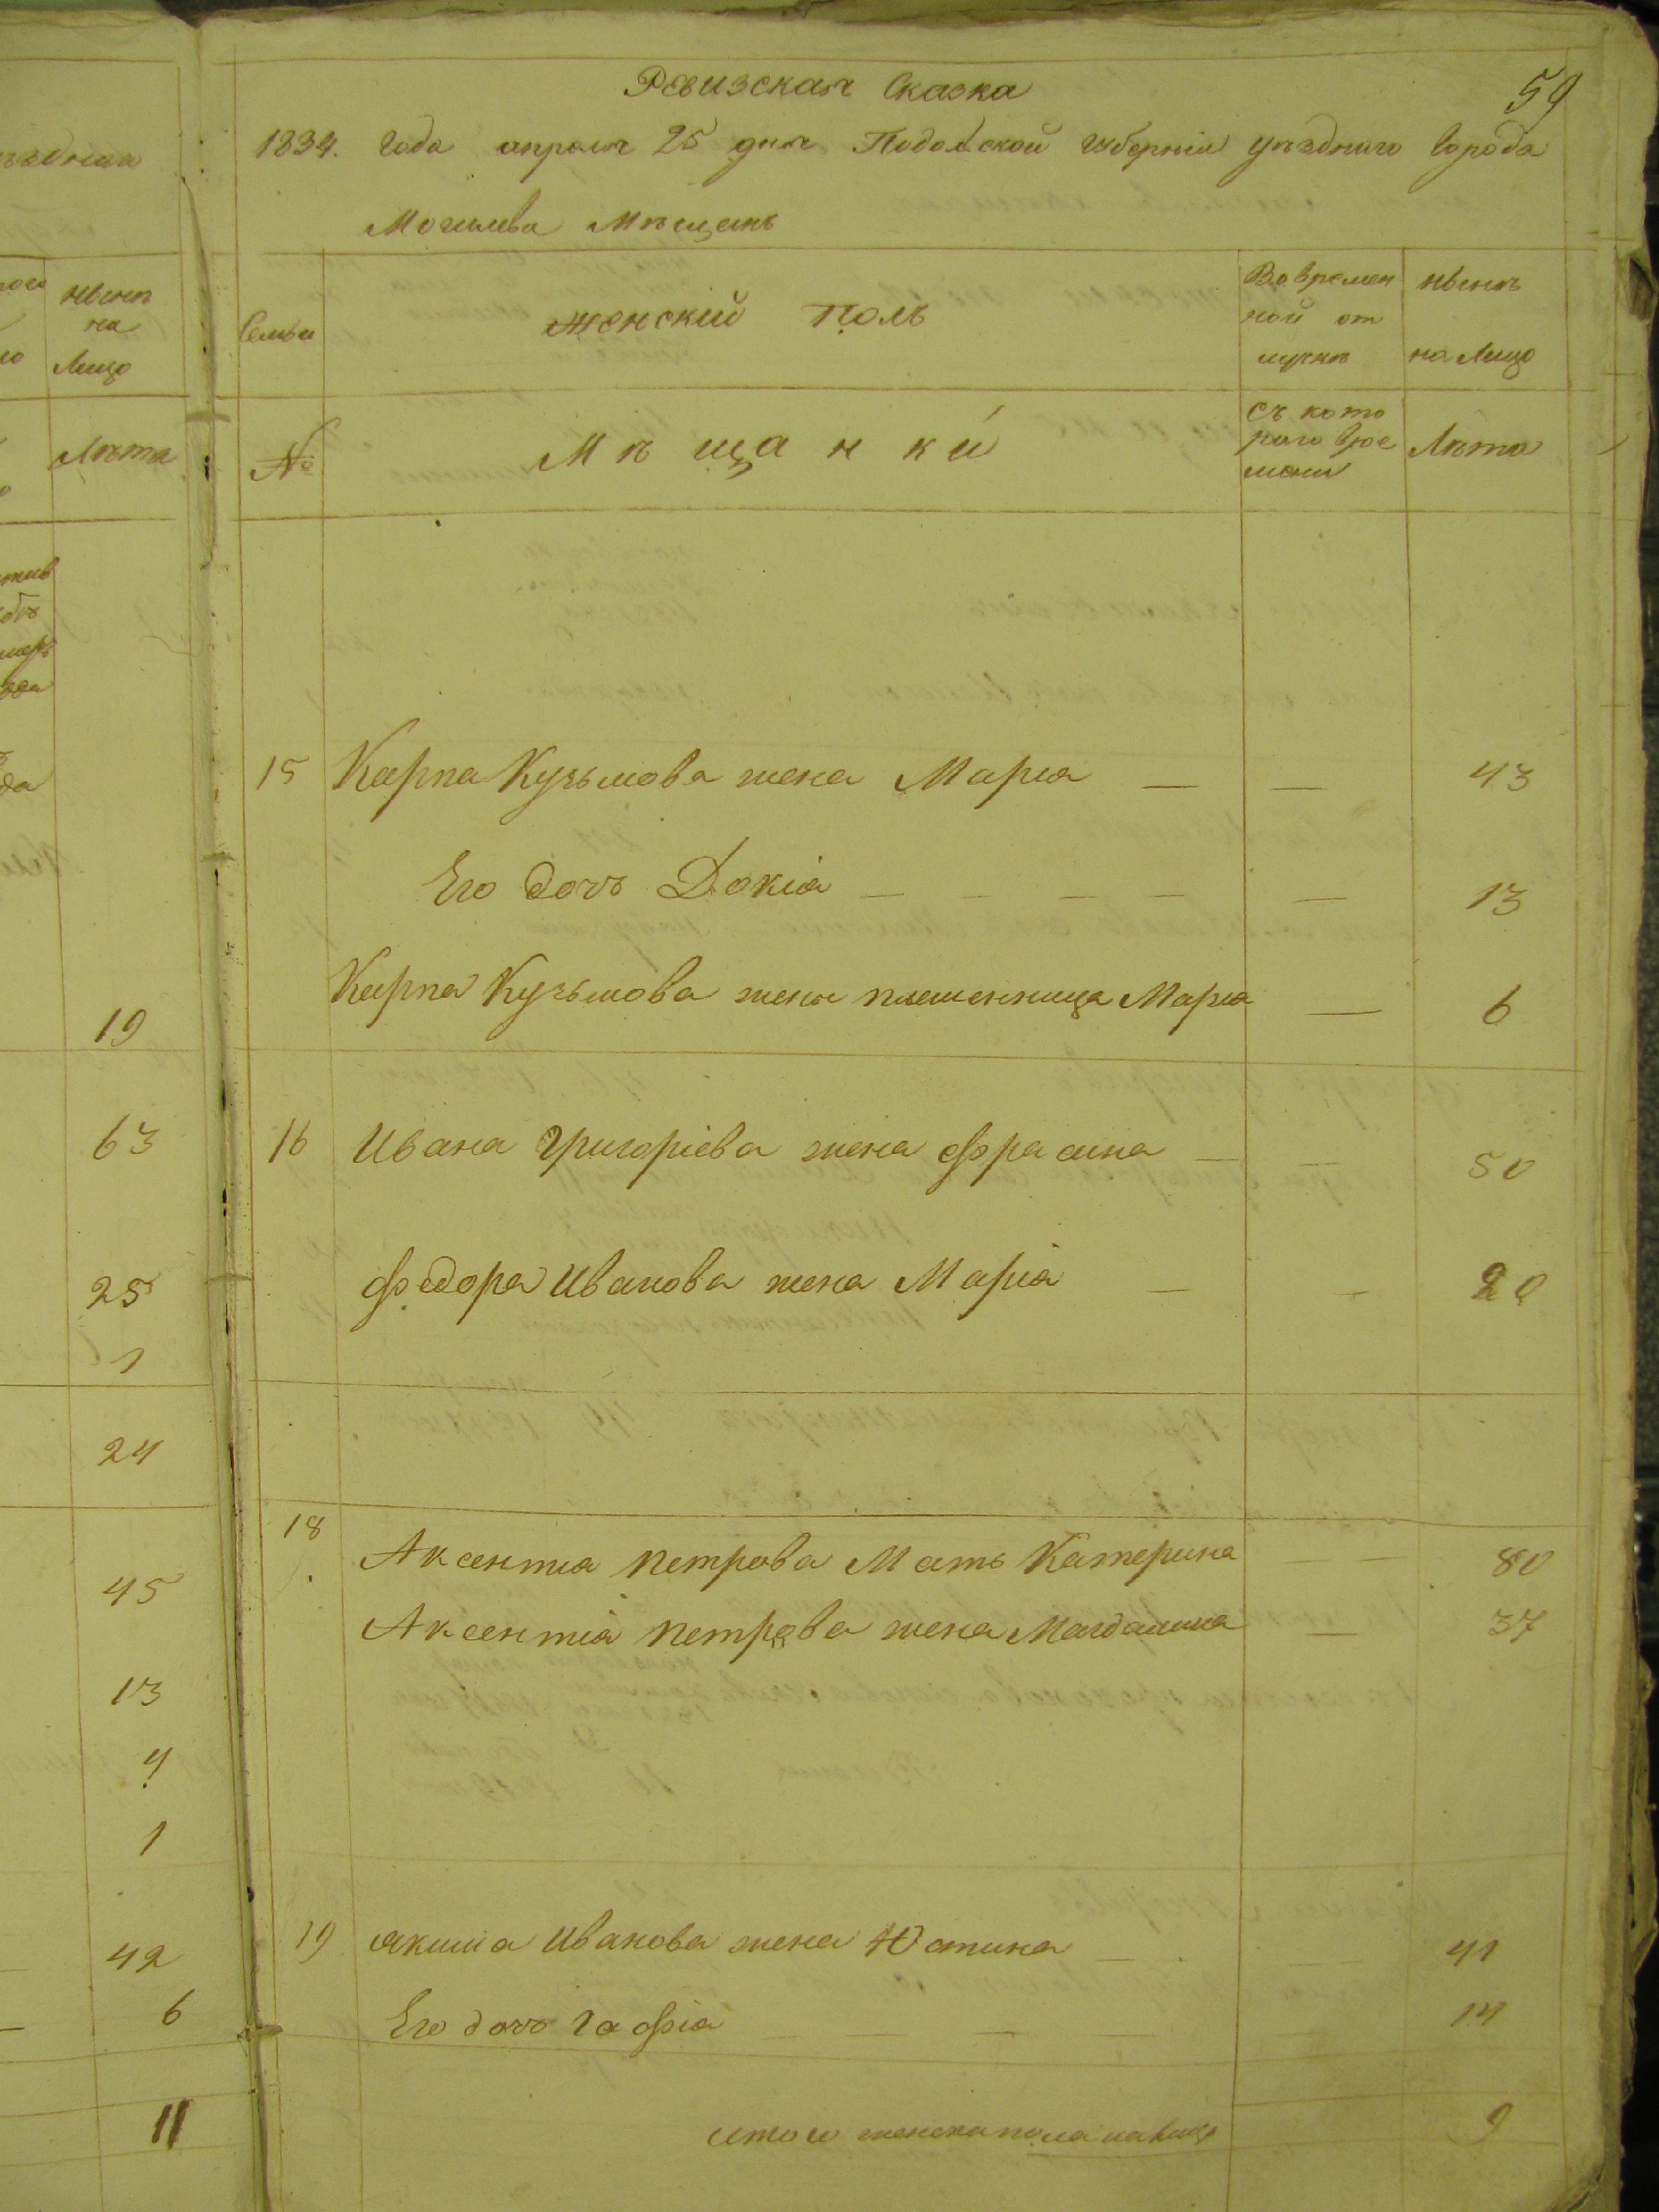 59
Ревизская Сказка
1834. Года апреля 25 дня Подольской губернии уѣзднаго города
Могилева Мѣщанъ
Семьи
Женский Полъ
Во времен
ной от
лучкѣ
нынѣ
на Лицо
№
Мѣщанки
Съ кото
раго вре
мени
Лѣта
15 Карпа Кузьмова жена Мария — — 43
Его дочь Докіа — — — — — 13
Карпа Кузьмова жены племенница Мария — 6
16 Ивана Григоріева жена Фрасина — — 50
Федора Иванова жена Маріа — — 20
18 Аксентиа Петрова Мать Катерина — — 80
Аксентіа Петрова жена Магдалина — 37
19 Якима Иванова жена Юстина — — 41
Его дочь Гафіа — — — 14
итого женска пола на лицо 9
нынѣ
на
Лицо
Лѣта
19
63
25
1
24
45
13
4
1
42
6
11